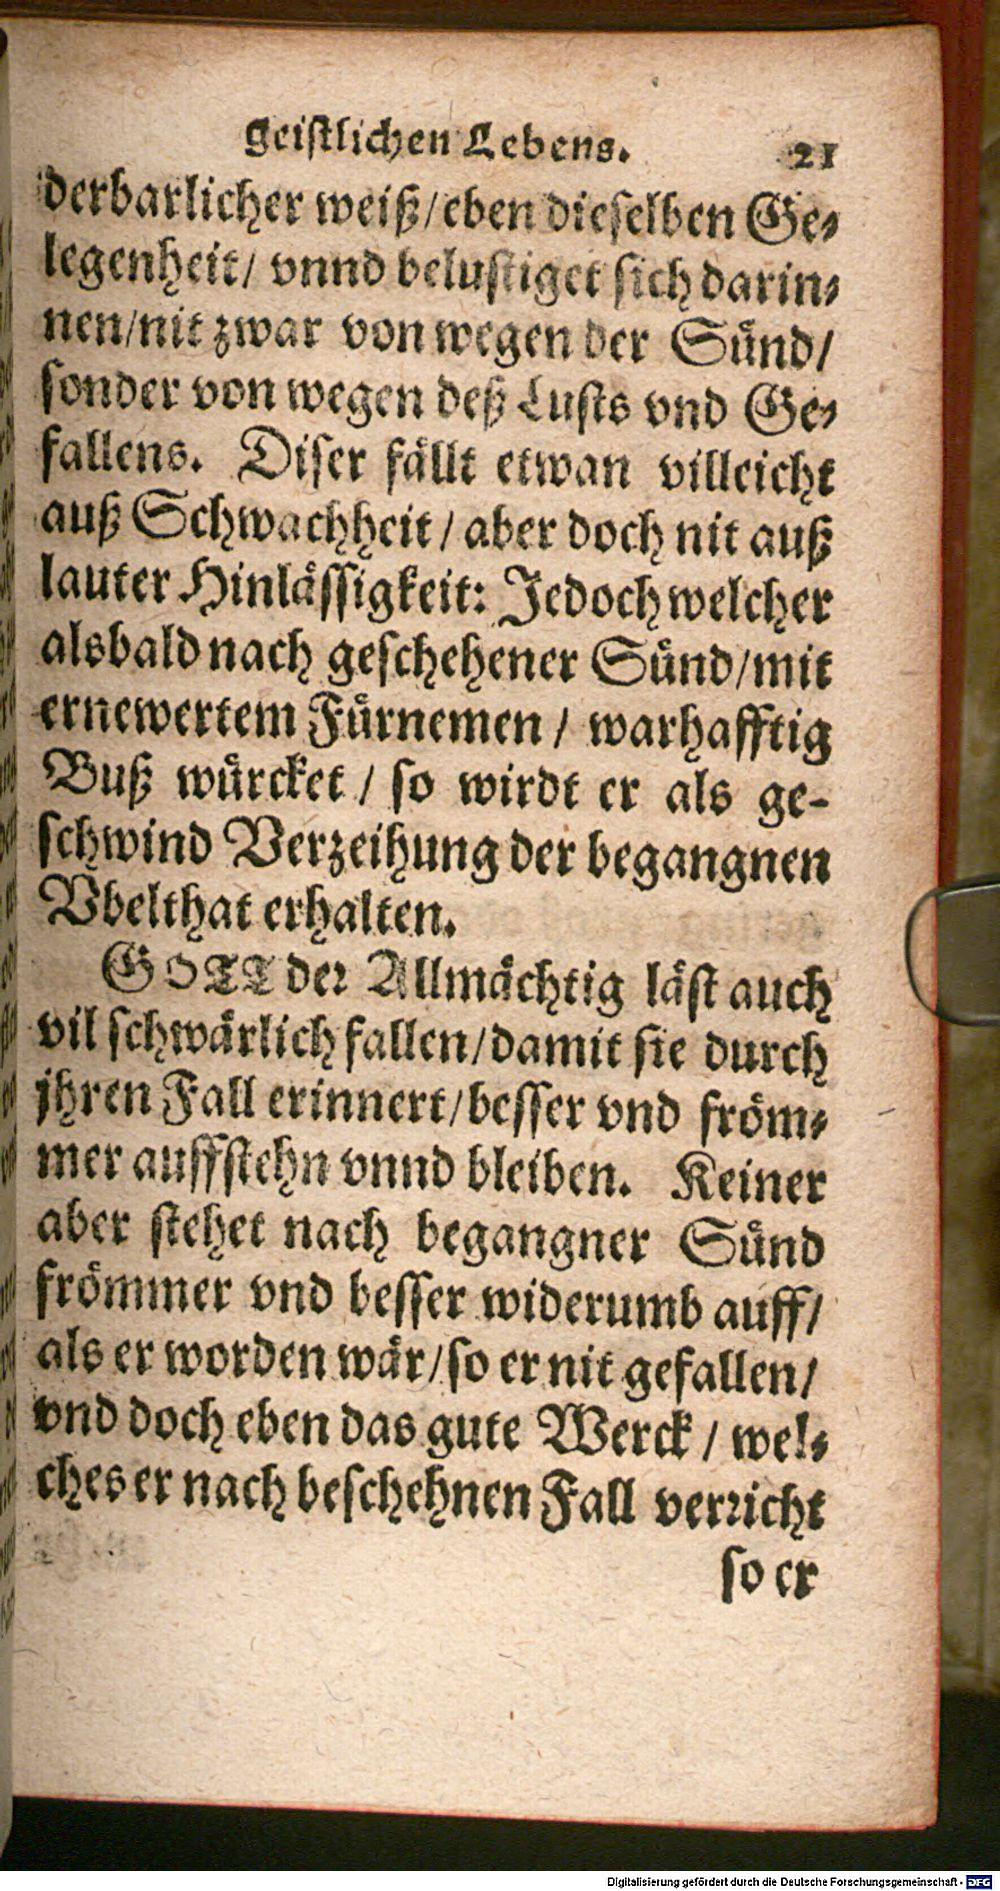 geistlichen Lebens. 21
derbarlicher weiß/eben dieselben Ge-
legenheit/ vnnd belustiget sich darin-
nen/nit zwar von wegen der Sünd/
sonder von wegen deß Lusts vnd Ge-
fallens. Diser fällt etwan villeicht
auß Schwachheit/ aber doch nit auß
lauter Hinlässigkeit: Jedoch welcher
alsbald nach geschehener Sünd/mit
ernewertem Fürnemen/ warhafftig
Buß würcket/ so wirdt er als ge-
schwind Verzeihung der begangnen
Vbelthat erhalten.
GOTT der Allmächtig läst auch
vil schwärlich fallen/damit sie durch
jhren Fall erinnert/besser vnd fröm-
mer auffstehn vnnd bleiben. Keiner
aber stehet nach begangner Sünd
frömmer vnd besser widerumb auff/
als er worden wär/so er nit gefallen/
vnd doch eben das gute Werck/ wel-
ches er nach beschehnen Fall verricht
so er
Digitalisierung gefördert durch die Deutsche Forschungsgemeinschaft - DFG